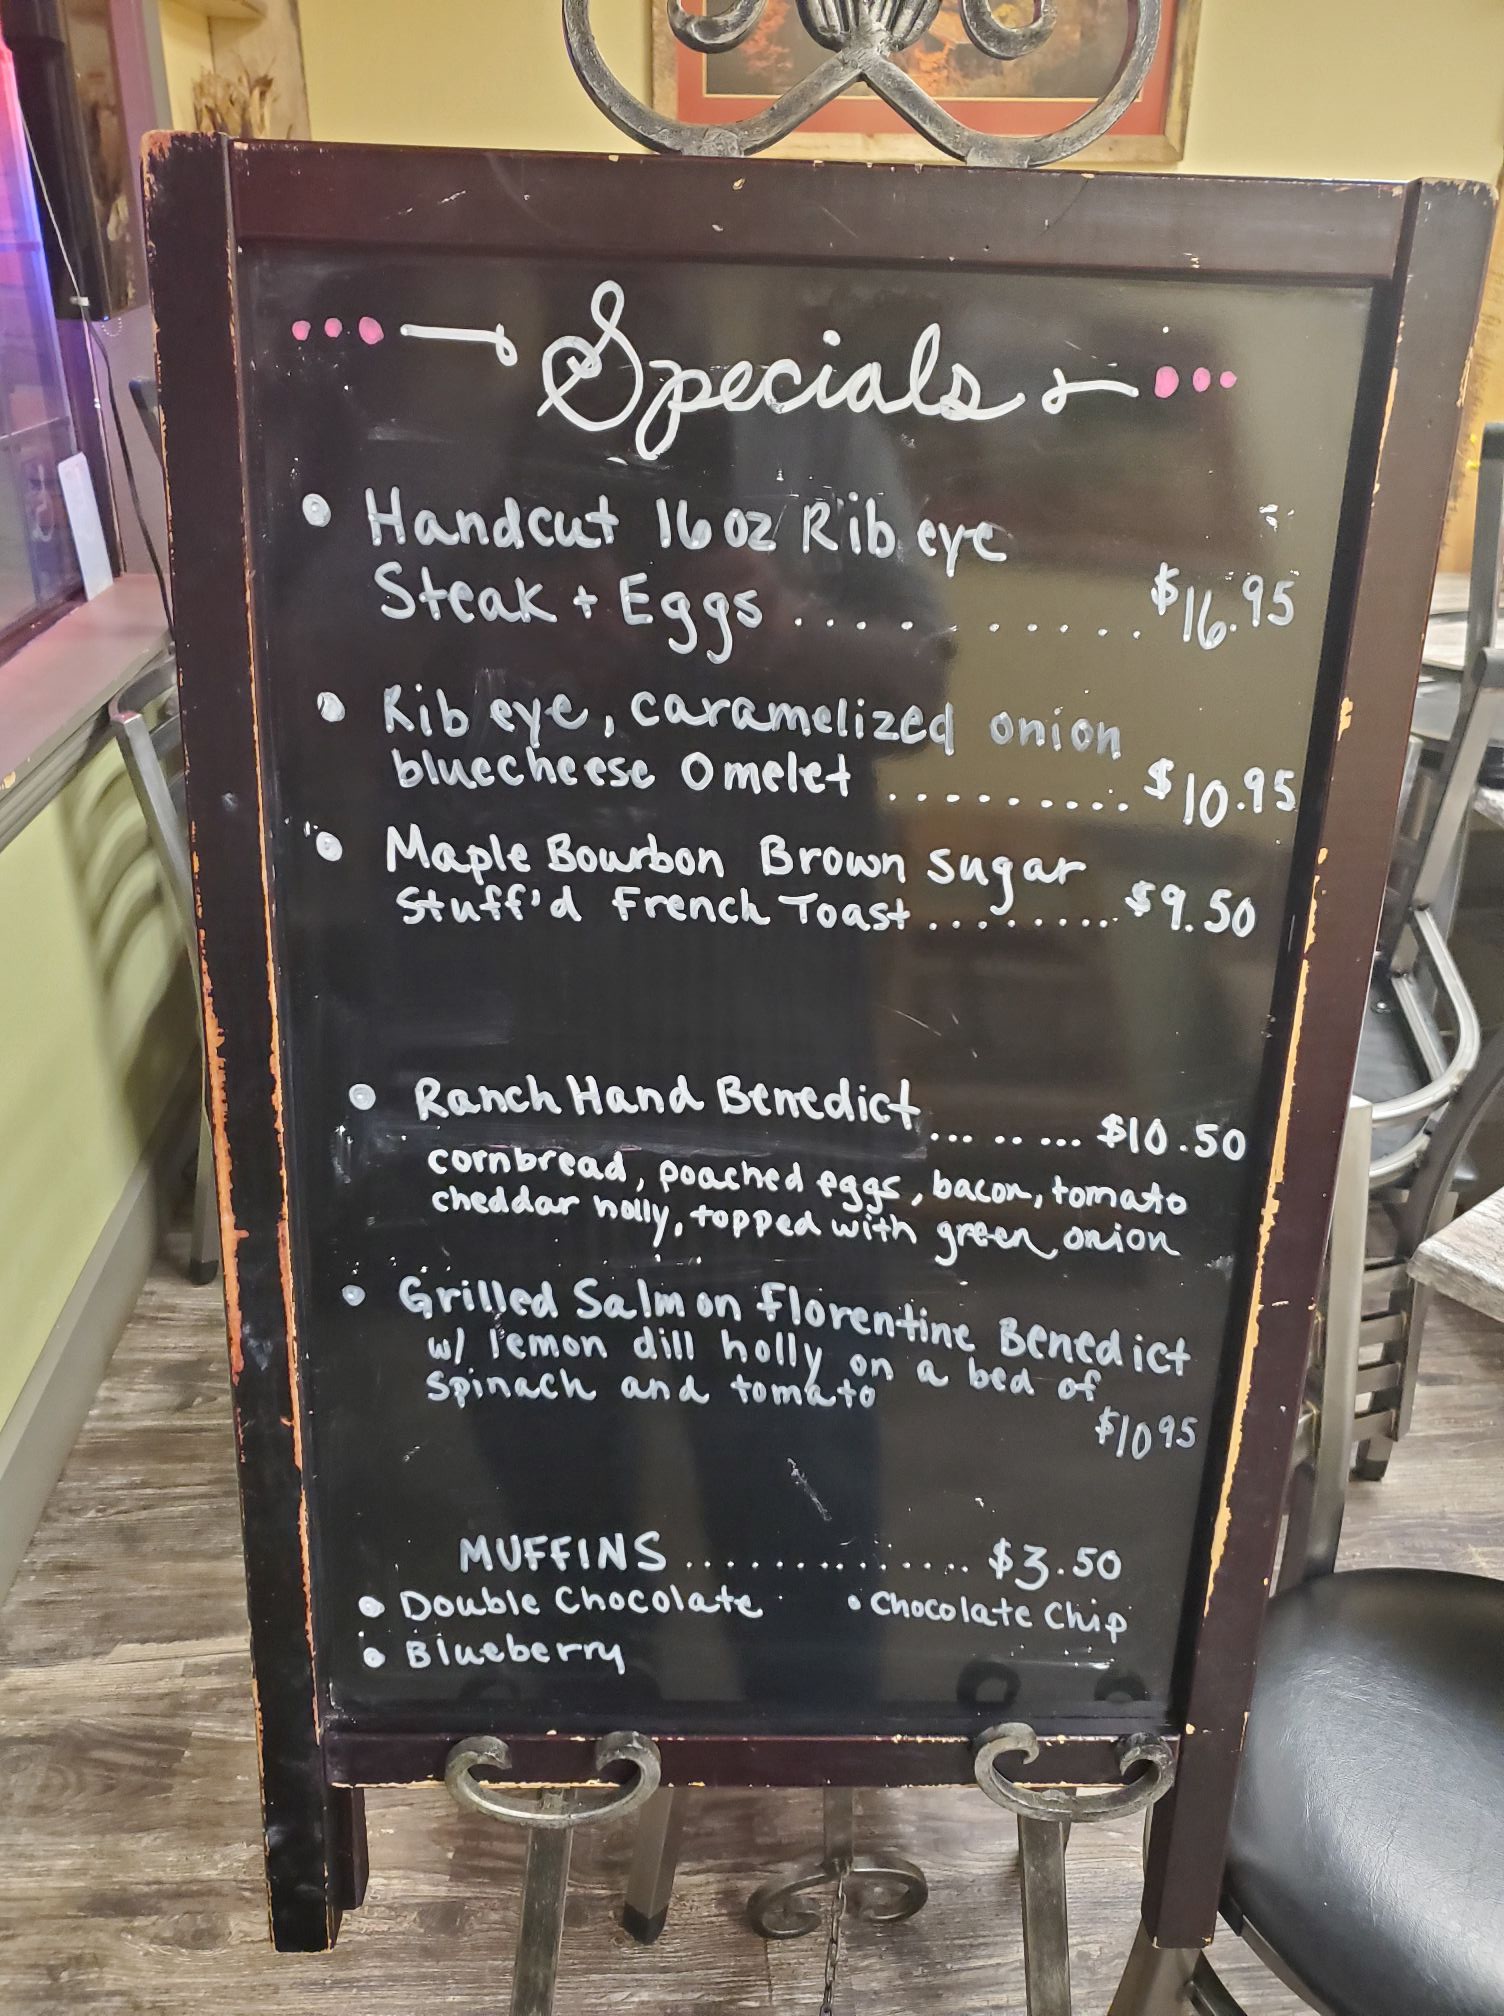 Specials
• Handcut 16oz Rib eye
Steak + Eggs ............ $16.95
• Rib eye, caramelized onion
bluecheese Omelet .......... $10.95
• Maple Bourbon Brown sugar
Stuff'd French Toast ........ $9.50
• Ranch Hand Benedict ........ $10.50
cornbread, poached eggs, bacon, tomato
cheddar holly, topped with green onion
• Grilled Salmon Florentine Benedict
w/ lemon dill holly on a bed of
spinach and tomato
$10.95
MUFFINS ............... $3.50
• Double Chocolate • Chocolate Chip
• Blueberry